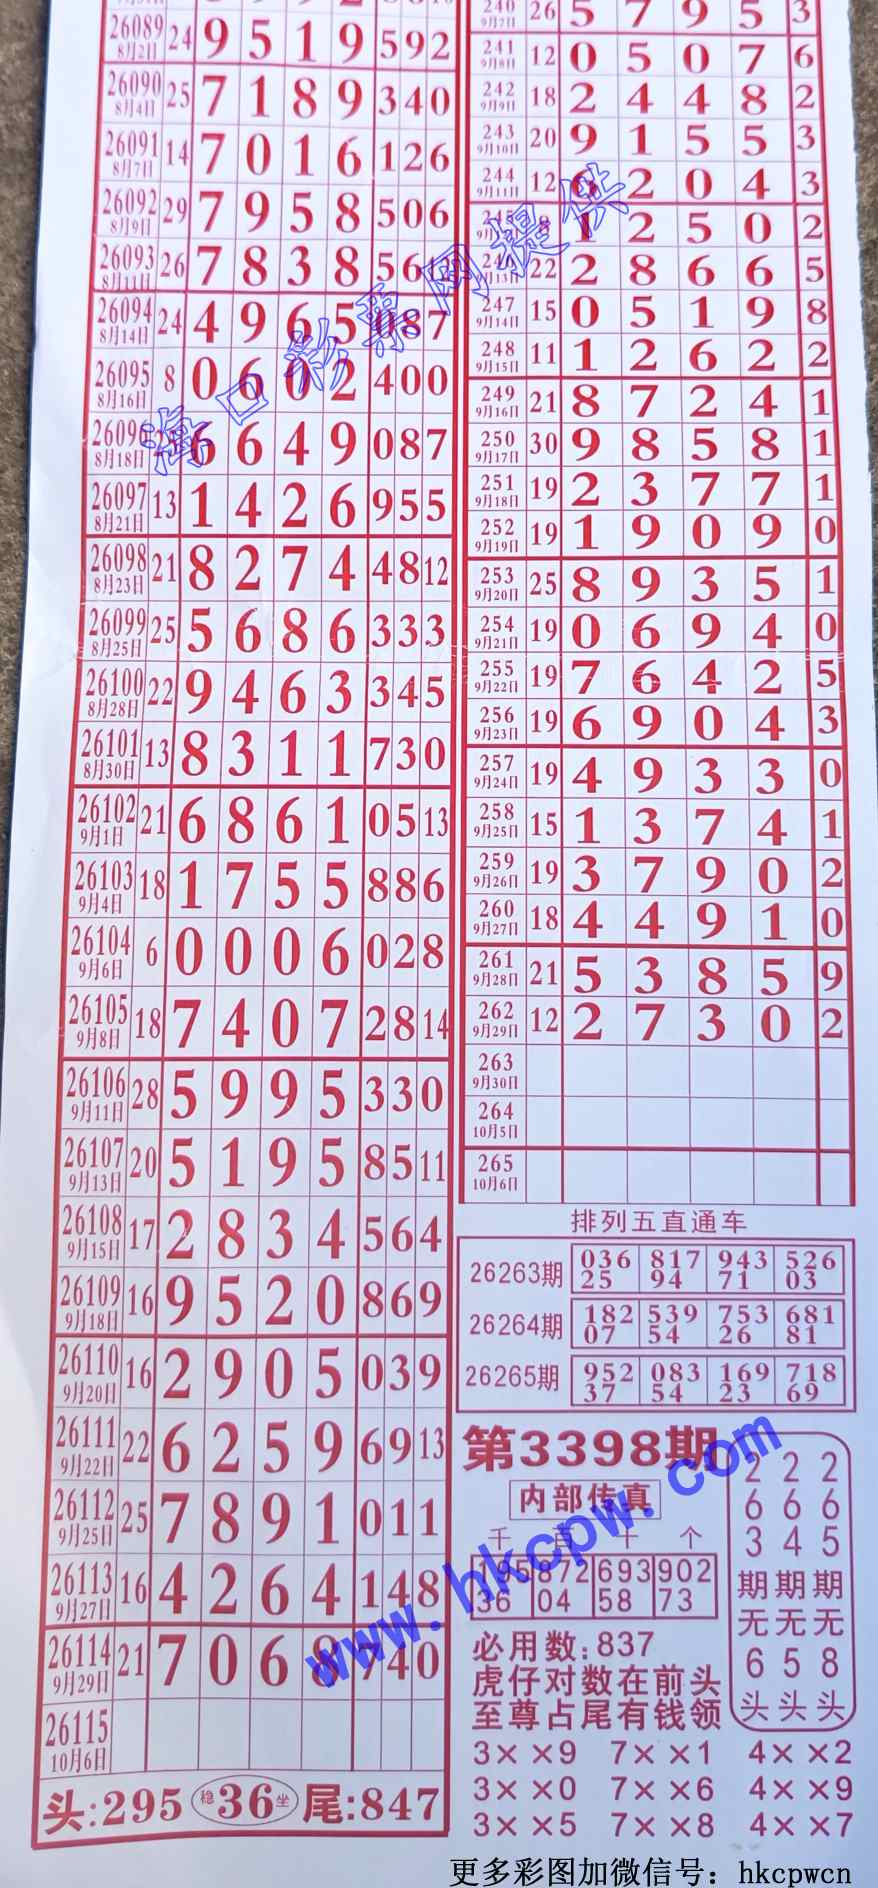 26089 8月2日 24 9 5 1 9 5 9 2
26090 8月4日 25 7 1 8 9 3 4 0
26091 8月7日 14 7 0 1 6 1 2 6
26092 8月9日 29 7 9 5 8 5 0 6
26093 8月11日 26 7 8 3 8 5 6
26094 8月14日 24 4 9 6 5 0 8 7
26095 8月16日 8 0 6 0 2 4 0 0
26096 8月18日 6 6 4 9 0 8 7
26097 8月21日 13 1 4 2 6 9 5 5
26098 8月23日 21 8 2 7 4 4 8 12
26099 8月25日 25 5 6 8 6 3 3 3
26100 8月28日 22 9 4 6 3 3 4 5
26101 8月30日 13 8 3 1 1 7 3 0
26102 9月1日 21 6 8 6 1 0 5 13
26103 9月4日 18 1 7 5 5 8 8 6
26104 9月6日 6 0 0 0 6 0 2 8
26105 9月8日 18 7 4 0 7 2 8 14
26106 9月11日 28 5 9 9 5 3 3 0
26107 9月13日 20 5 1 9 5 8 5 11
26108 9月15日 17 2 8 3 4 5 6 4
26109 9月18日 16 9 5 2 0 8 6 9
26110 9月20日 16 2 9 0 5 0 3 9
26111 9月22日 22 6 2 5 9 6 9 13
26112 9月25日 25 7 8 9 1 0 1 1
26113 9月27日 16 4 2 6 4 1 4 8
26114 9月29日 21 7 0 6 8 7 4 0
26115 10月6日
头:295 稳36坐 尾:847
240 9月7日 26 5 7 9 5 3
241 9月8日 12 0 5 0 7 6
242 9月9日 18 2 4 4 8 2
243 9月10日 20 9 1 5 5 3
244 9月11日 12 6 2 0 4 3
8 1 2 5 0 2
246 9月13日 22 2 8 6 6 5
247 9月14日 15 0 5 1 9 8
248 9月15日 11 1 2 6 2 2
249 9月16日 21 8 7 2 4 1
250 9月17日 30 9 8 5 8 1
251 9月18日 19 2 3 7 7 1
252 9月19日 19 1 9 0 9 0
253 9月20日 25 8 9 3 5 1
254 9月21日 19 0 6 9 4 0
255 9月22日 19 7 6 4 2 5
256 9月23日 19 6 9 0 4 3
257 9月24日 19 4 9 3 3 0
258 9月25日 15 1 3 7 4 1
259 9月26日 19 3 7 9 0 2
260 9月27日 18 4 4 9 1 0
261 9月28日 21 5 3 8 5 9
262 9月29日 12 2 7 3 0 2
263 9月30日
264 10月5日
265 10月6日
排列五直通车
26263期 03625 81794 94371 52603
26264期 18207 53954 75326 68181
26265期 95237 08354 16923 71869
第3398期
内部传真
千 百 十 个
19536 87204 69358 90273
必用数:837
虎仔对数在前头
至尊占尾有钱领
263期无6头
264期无5头
265期无8头
3××9 7××1 4××2
3××0 7××6 4××9
3××5 7××8 4××7
海口彩票网提供
www.hkcpw.com
更多彩图加微信号：hkcpwcn